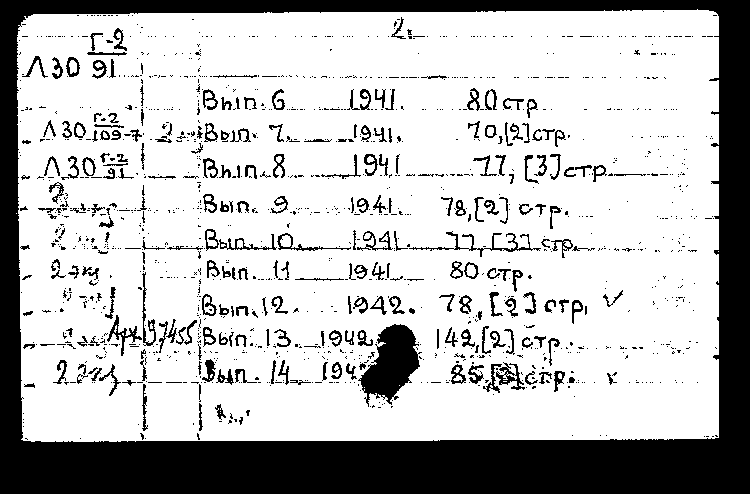 2.
Г-2
Л30 91
Вып. 6 1941. 80 стр
Л30 Г-2/109-7 Вып. 7. 1941. 70,[2] стр.
Л30 Г-2/91 Вып. 8 1941 77, [3] стр
Вып. 9. 1941. 78,[2] стр.
Вып. 10. 1941. 77, [3] стр.
2 экз. Вып. 11 1941. 80 стр.
Вып. 12. 1942. 78, [2] стр. ✓
Арх 97455 Вып. 13. 1942 142,[2] стр.
2 экз. Вып. 14 194 85, стр.